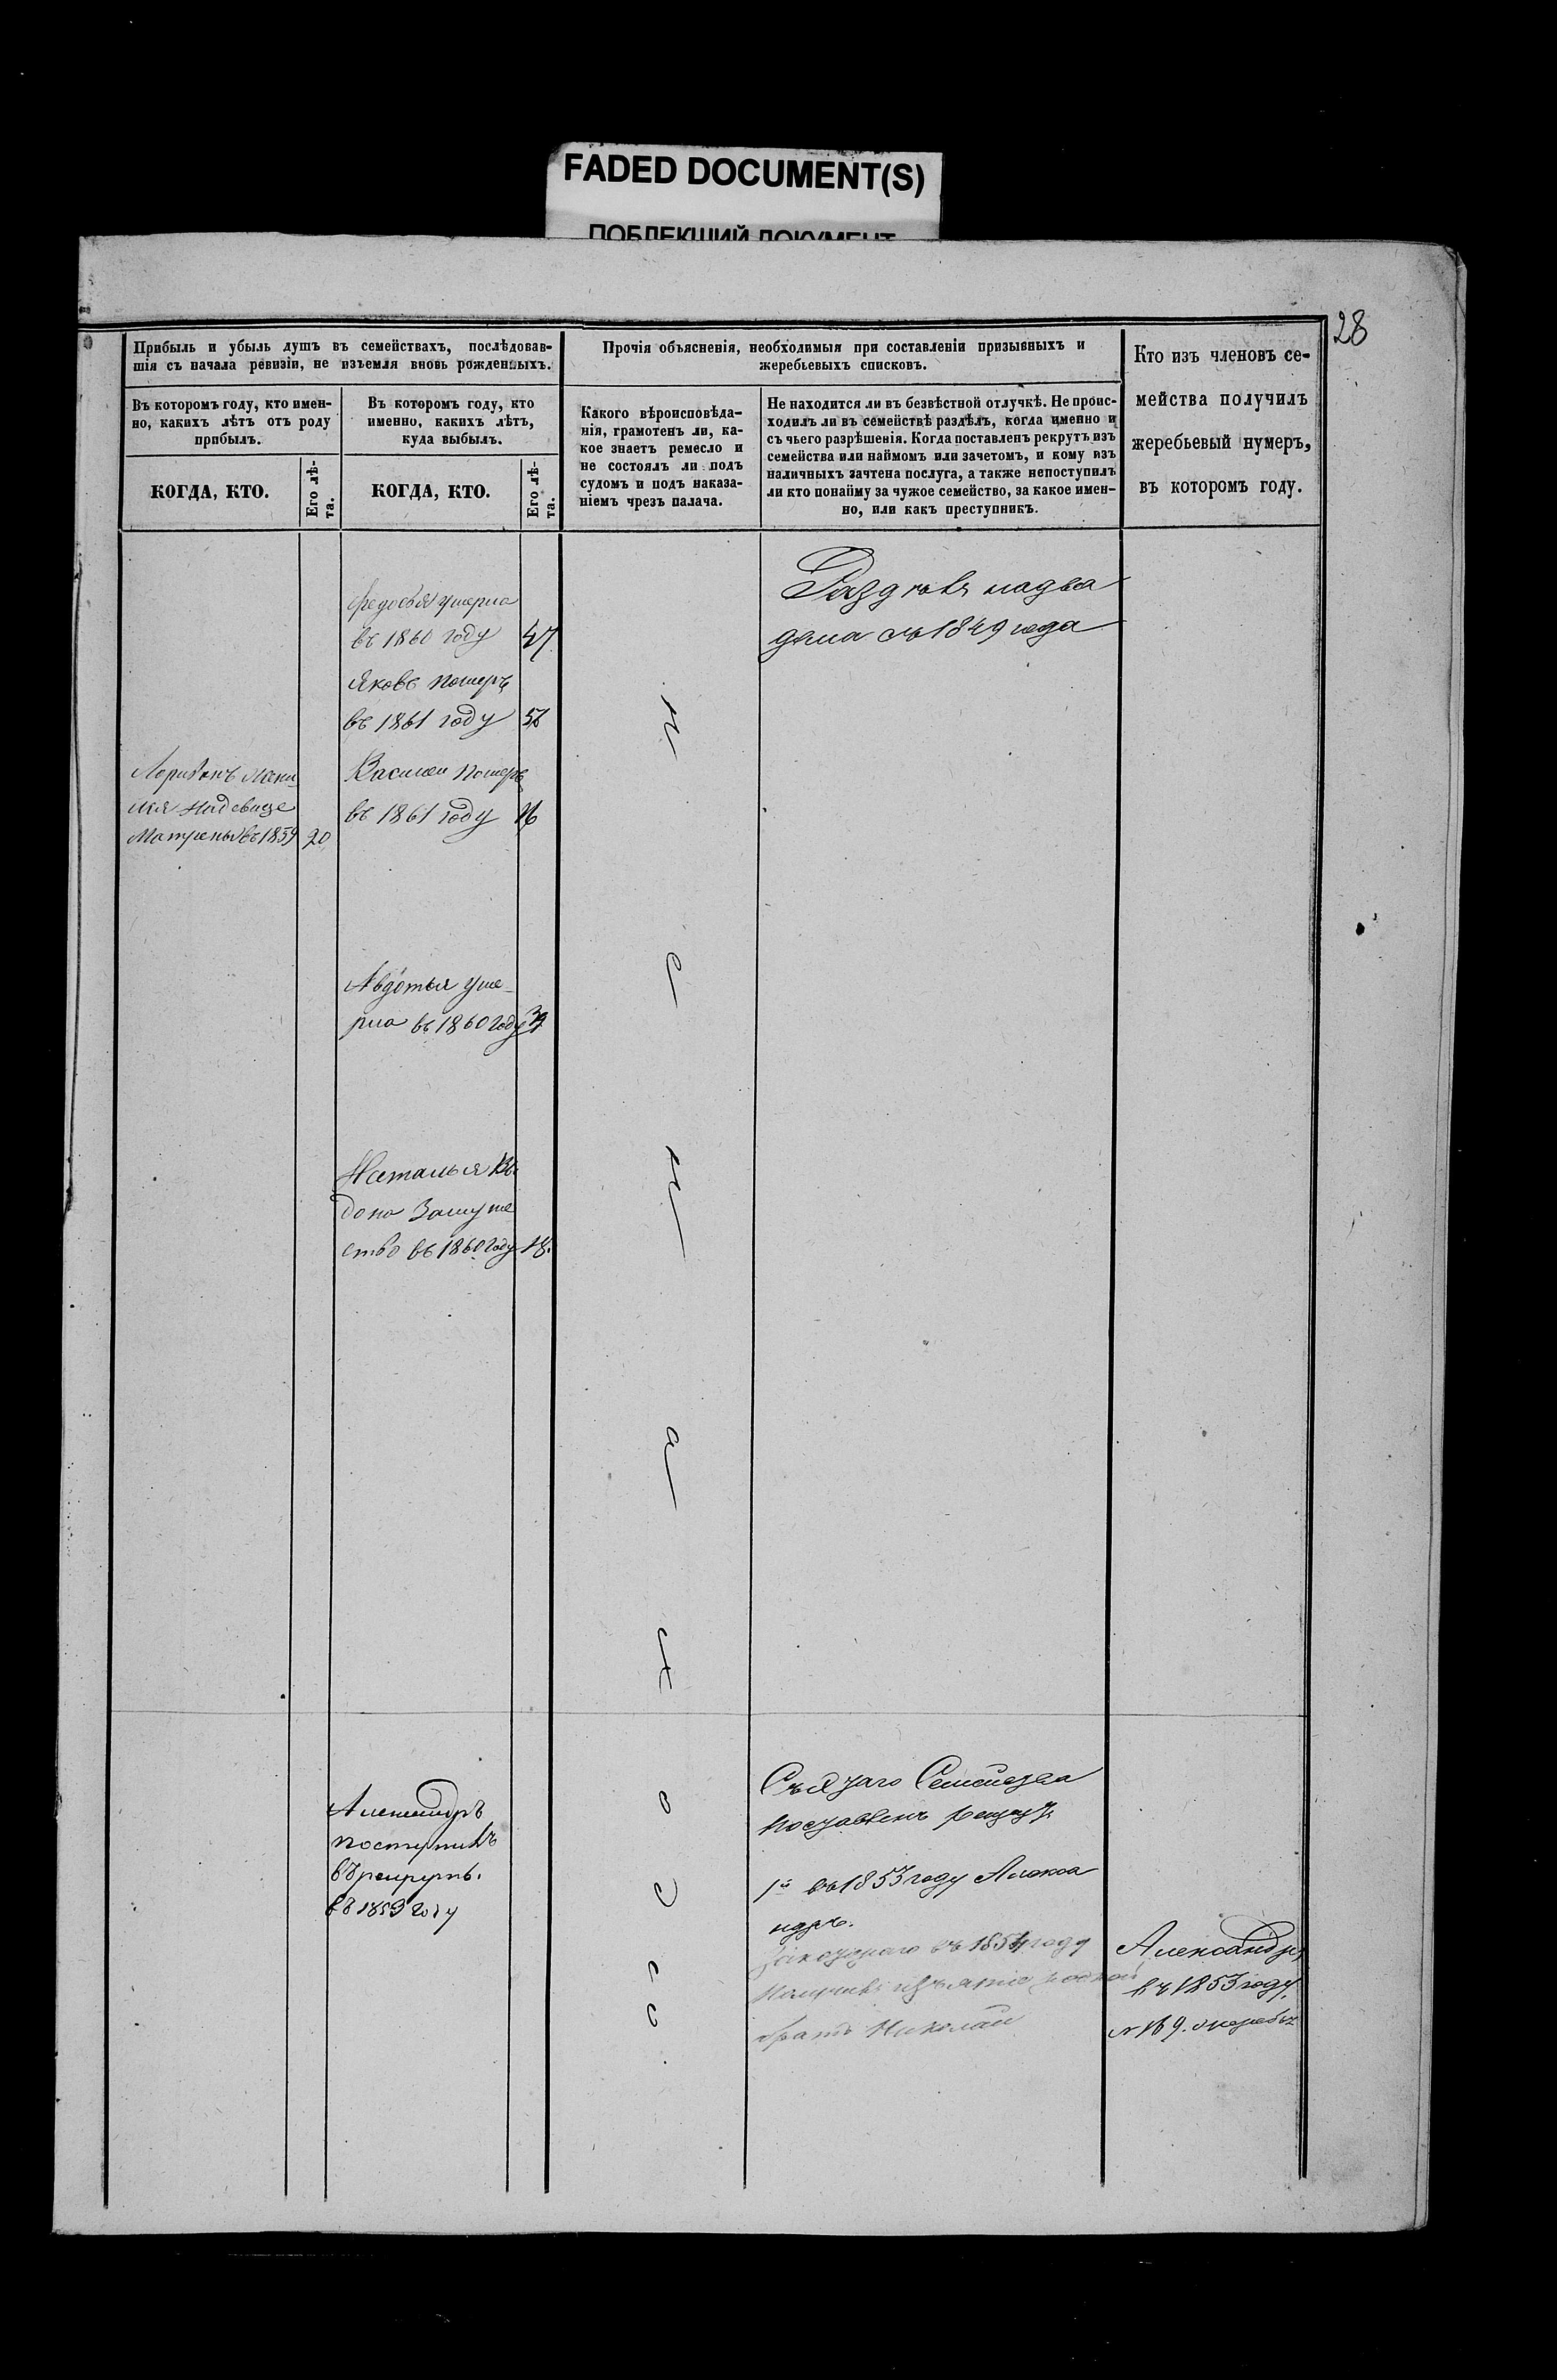 FADED DOCUMENT(S)
ПОБЛЕКШИЙ ДОКУМЕНТ
28
Прибыль и убыль душъ въ семействахъ, послѣдовав-
шія съ начала ревизіи, не изъемля вновь рожденныхъ.
Въ которомъ году, кто имен-
но, какихъ лѣтъ отъ роду
прибылъ.
КОГДА, КТО.
Его лѣ-
та.
Въ которомъ году, кто
именно, какихъ лѣтъ,
куда выбылъ.
КОГДА, КТО.
Его лѣ-
та.
Прочія объясненія, необходимыя при составленіи призывныхъ и
жеребьевыхъ списковъ.
Какого вѣроисповѣда-
нія, грамотенъ ли, ка-
кое знаетъ ремесло и
не состоялъ ли подъ
судомъ и подъ наказа-
ніемъ чрезъ палача.
Не находится ли въ безвѣстной отлучкѣ. Не проис-
ходилъ ли въ семействѣ раздѣлъ, когда именно и
съ чьего разрѣшенія. Когда поставленъ рекрутъ изъ
семейства или наймомъ или зачетомъ, и кому изъ
наличныхъ зачтена послуга, а также непоступилъ
ли кто понайму за чужое семейство, за какое имен-
но, или какъ преступникъ.
Кто изъ членовъ се-
мейства получилъ
жеребьевый нумеръ,
въ которомъ году.
Матрены въ 1859 20
Федосья умерла
въ 1860 году 47
Яковъ померъ
въ 1861 году
Василеи померъ
въ 1861 году 16
Авдотья уме-
рла въ 1860 году
Наталья Вы
дона Замуже
ство въ 1860 году 18.
Александръ
поступилъ
въ рекруты.
въ 1853 году
н
е
н
а
х
о
с
с
о
надва
дыма съ 1849 года
Семейства
поставленъ рекрутъ
1й въ 1853 году Алекса
ндръ.
въ 1854 году
братъ Николаи
Александръ
въ 1853 году.